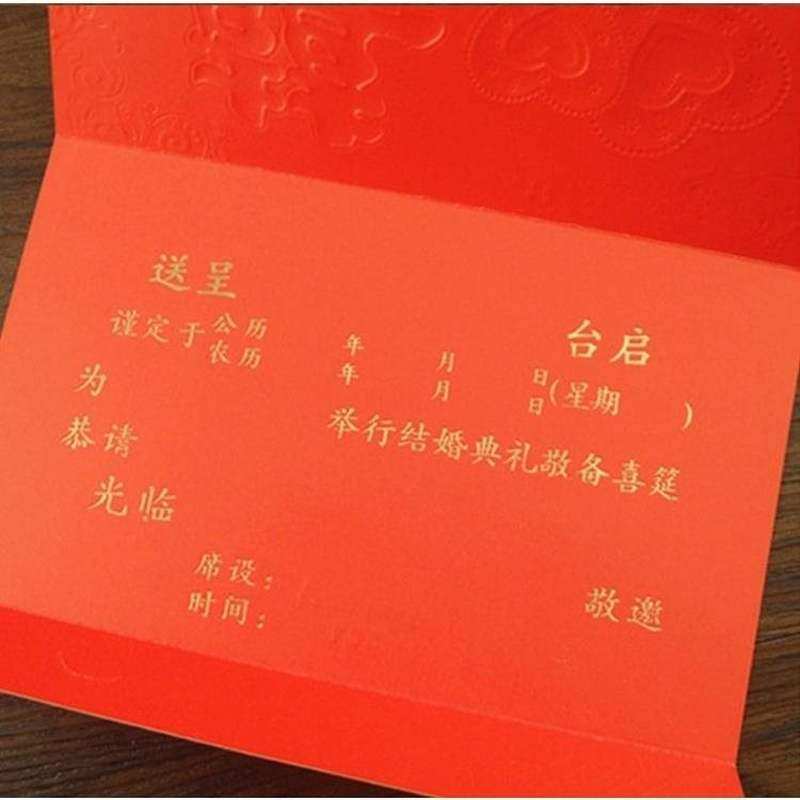 送呈 台启
谨定于公历 年 月 日(星期 )
农历 年 月 日
为 举行结婚典礼敬备喜筵
恭请
光临
席设： 敬邀
时间：